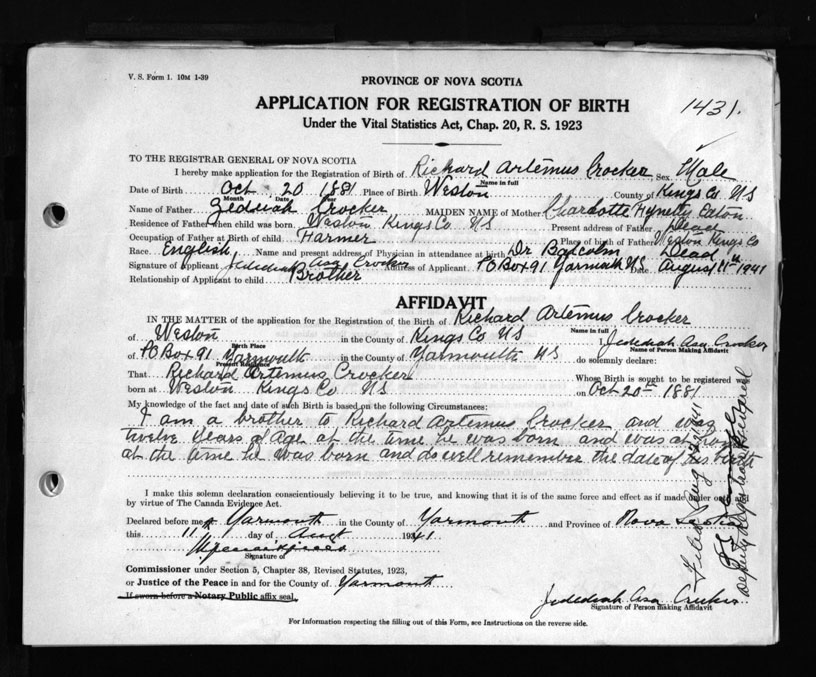 V. S. Form 1. 10M 1-39
PROVINCE OF NOVA SCOTIA
APPLICATION FOR REGISTRATION OF BIRTH
1431.
Under the Vital Statistics Act, Chap. 20, R. S. 1923
TO THE REGISTRAR GENERAL OF NOVA SCOTIA
I hereby make application for the Registration of Birth of Richard Artemus Crocker Sex Male
Name in full
Date of Birth Oct 20 1881 Place of Birth Weston County of Kings Co NS
Month Date Year
Name of Father Jedediah Crocker MAIDEN NAME of Mother Charlotte Eaton
Residence of Father when child was born Weston Kings Co NS Present address of Father Dead
Occupation of Father at Birth of child Farmer Place of birth of Father Weston Kings Co
Race English Name and present address of Physician in attendance at birth Dr Balcolm Dead
Signature of Applicant Jedediah Asa Crocker Address of Applicant PO Box 91 Yarmouth NS Date August 11th 1941
Relationship of Applicant to child Brother
AFFIDAVIT
IN THE MATTER of the application for the Registration of the Birth of Richard Artemus Crocker
Name in full
of Weston in the County of Kings Co NS I Jedediah Asa Crocker
Birth Place Name of Person Making Affidavit
of PO Box 91 Yarmouth in the County of Yarmouth NS do solemnly declare:
Present Residence
That Richard Artemus Crocker Whose Birth is sought to be registered was
born at Weston Kings Co NS on Oct 20th 1881
My knowledge of the fact and date of such Birth is based on the following Circumstances:
I am a brother to Richard Artemus Crocker and was
twelve years of age at the time he was born and was at home
at the time he was born and do well remember the date of his birth
I make this solemn declaration conscientiously believing it to be true, and knowing that it is of the same force and effect as if made under oath and
by virtue of The Canada Evidence Act.
Declared before me at Yarmouth in the County of Yarmouth and Province of Nova Scotia
this 11 day of Augt 1941
Signature of
Commissioner under Section 5, Chapter 38, Revised Statutes, 1923,
or Justice of the Peace in and for the County of Yarmouth
If sworn before a Notary Public affix seal.
Jedediah Asa Crocker
Signature of Person making Affidavit
For Information respecting the filling out of this Form, see Instructions on the reverse side.
Filed Aug 1941
Deputy Registrar General